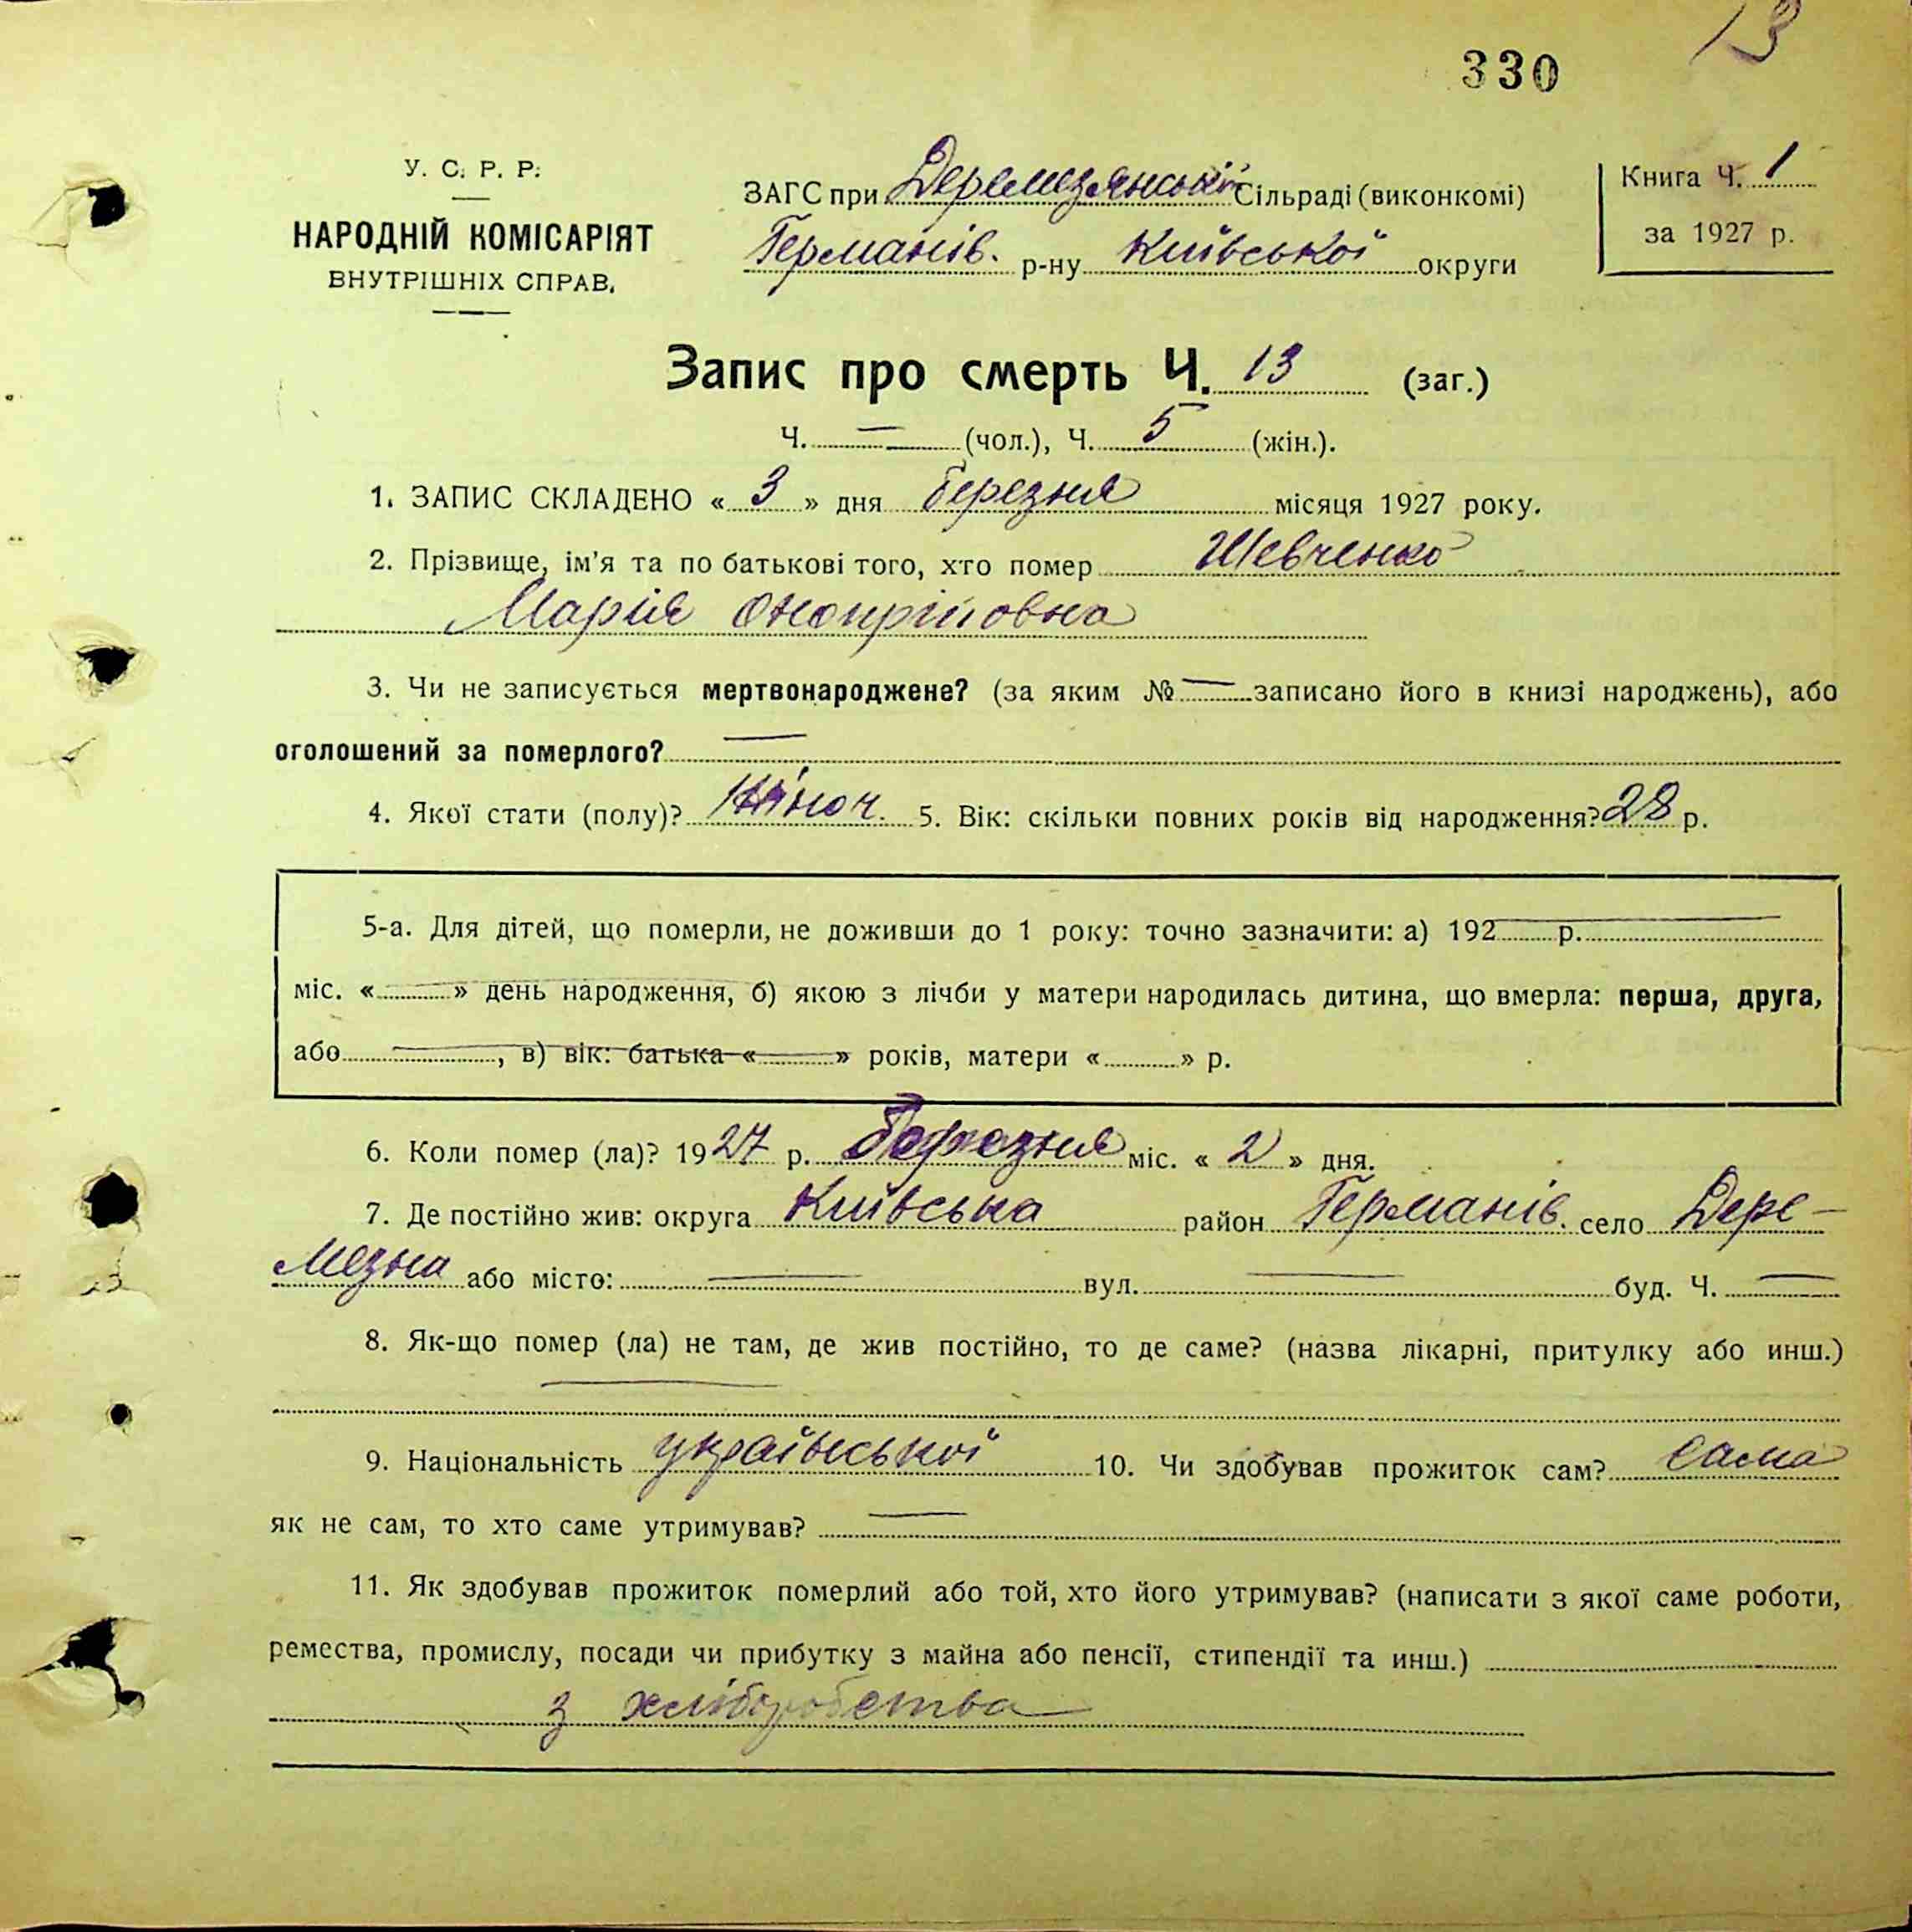 13
330
У. С. Р. Р.
НАРОДНІЙ КОМІСАРІЯТ
ВНУТРІШНІХ СПРАВ.
ЗАГС при Деремезянській Сільраді (виконкомі)
Германів. р-ну Київської округи
Книга Ч. 1
за 1927 р.
Запис про смерть Ч. 13 (заг.)
Ч. — (чол.), Ч. 5 (жін.).
1. ЗАПИС СКЛАДЕНО « 3 » дня березня місяця 1927 року.
2. Прізвище, ім'я та по батькові того, хто помер Шевченко
Марія Онопріїовна
3. Чи не записується мертвонароджене? (за яким № — записано його в книзі народжень), або
оголошений за померлого? —
4. Якої стати (полу)? Жіноч. 5. Вік: скільки повних років від народження? 28 р.
5-а. Для дітей, що померли, не доживши до 1 року: точно зазначити: а) 192 — р. —
міс. « — » день народження, б) якою з лічби у матери народилась дитина, що вмерла: перша, друга,
або —, в) вік: батька « — » років, матери « » р.
6. Коли помер (ла)? 1927 р. березня міс. « 2 » дня.
7. Де постійно жив: округа Київська район Германів. село Дере-
мезна або місто: — вул. — буд. Ч. —
8. Як-що помер (ла) не там, де жив постійно, то де саме? (назва лікарні, притулку або инш.)
—
9. Національність української 10. Чи здобував прожиток сам? сама
як не сам, то хто саме утримував? —
11. Як здобував прожиток померлий або той, хто його утримував? (написати з якої саме роботи,
ремества, промислу, посади чи прибутку з майна або пенсії, стипендії та инш.)
з хліборобства